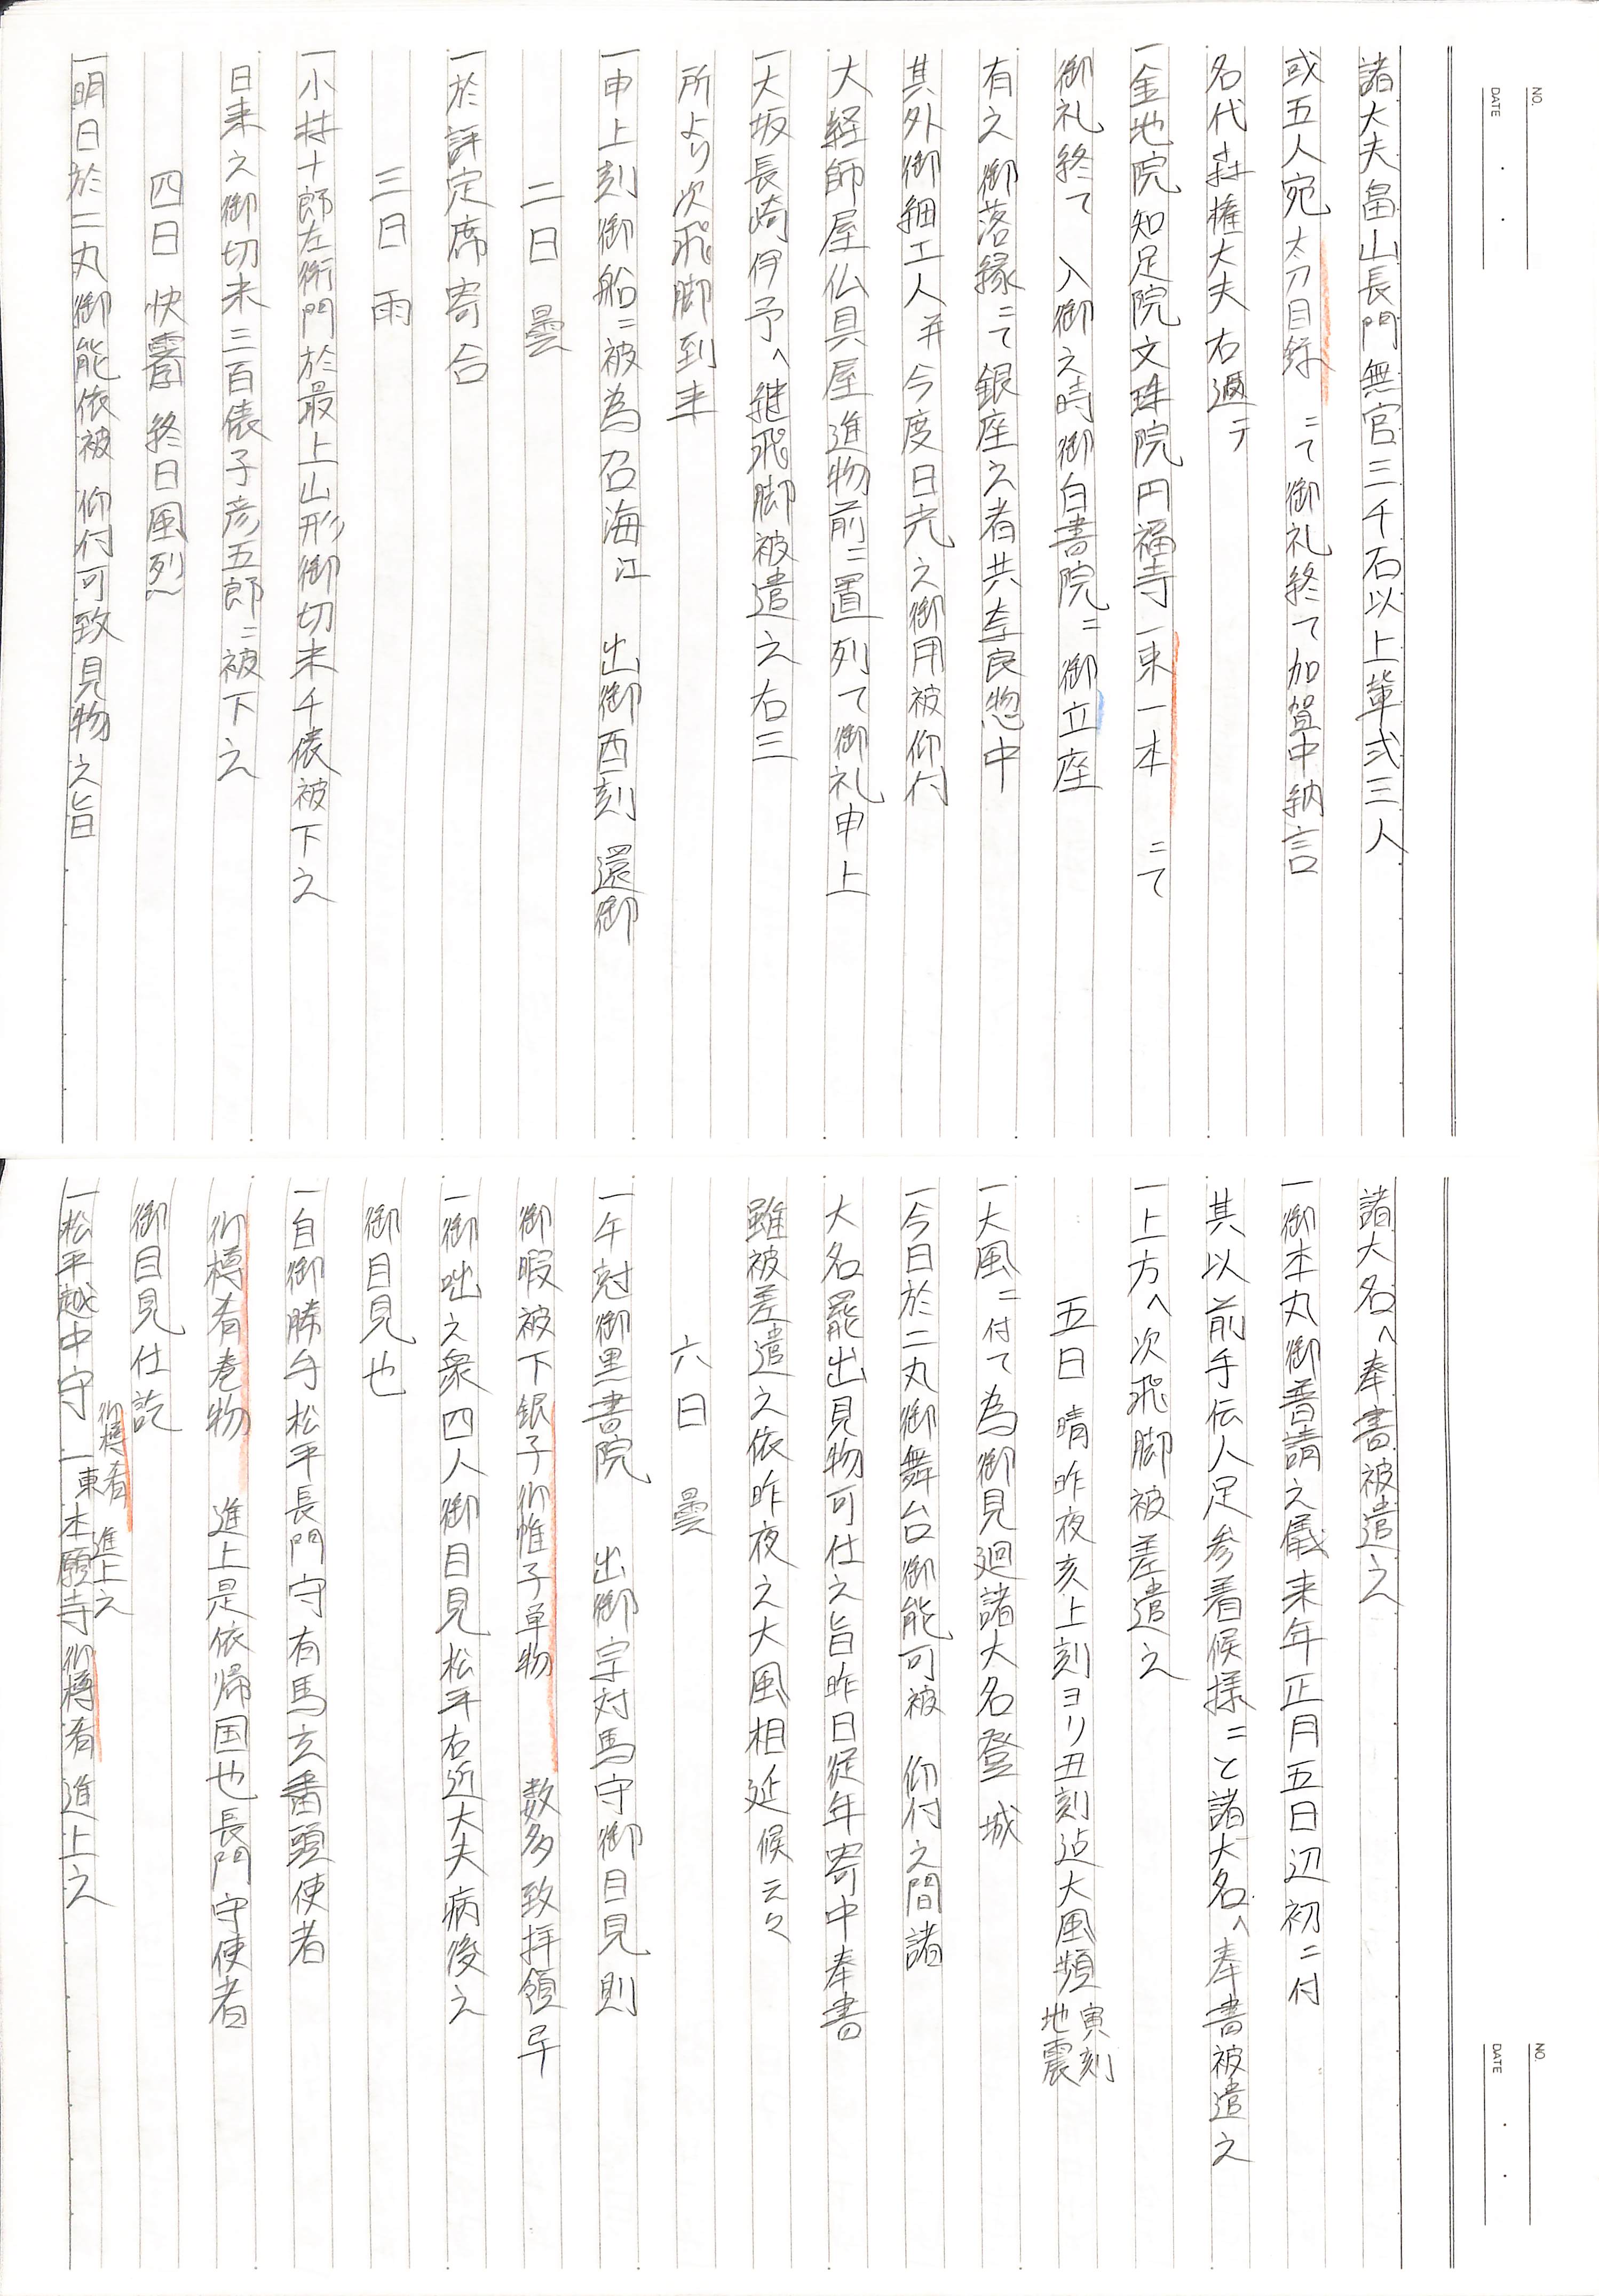 NO.
DATE ・ ・
諸大夫畠山長門無官三千石以上輩弐三人
或五人宛太刀目録 ニて御礼終て加賀中納言
名代森権大夫右逓テ
一金地院知足院文珠院円福寺一束一本 ニて
御礼終て 入御之時御白書院ニ 御立座
有之御落縁ニて銀座之者共奈良惣中
其外御細工人并今度日光之御用被仰付
大経師屋仏具屋進物前ニ置列て御礼申上
一大坂長崎伊予へ継飛脚被遣之右三
所より次飛脚到来
一申上刻御船ニ被為召海江 出御酉刻 還御
二日 曇
一於評定席寄合
三日 雨
一小林十郎左衛門於最上山形御切米千俵被下之
日来之御切米三百俵子彦五郎ニ被下之
四日 快霽 終日風烈
一明日於二丸御能依被 仰付可致見物之旨
NO.
DATE ・ ・
諸大名へ奉書被遣之
一御本丸御普請之儀来年正月五日辺初ニ付
其以前手伝人足参着候様ニと諸大名へ奉書被遣之
一上方へ次飛脚被差遣之
五日 晴 昨夜亥上刻ヨリ丑刻迠大風頻 寅刻地震
一大風ニ付て為御見廻諸大名登 城
一今日於二丸御舞台御能可被 仰付之間諸
大名罷出見物可仕之旨昨日従年寄中奉書
雖被差遣之依昨夜之大風相延候云々
六日 曇
一午刻御黒書院 出御宗対馬守御目見則
御暇被下銀子御帷子単物 数多致拝領
一御咄之衆四人御目見松平右近大夫病後之
御目見也
一自御勝手松平長門守有馬玄蕃頭使者
御樽肴巻物 進上是依帰国也長門守使者
御目見仕訖
一松平越中守 御樽肴 進上之
一東本願寺御樽肴 進上之